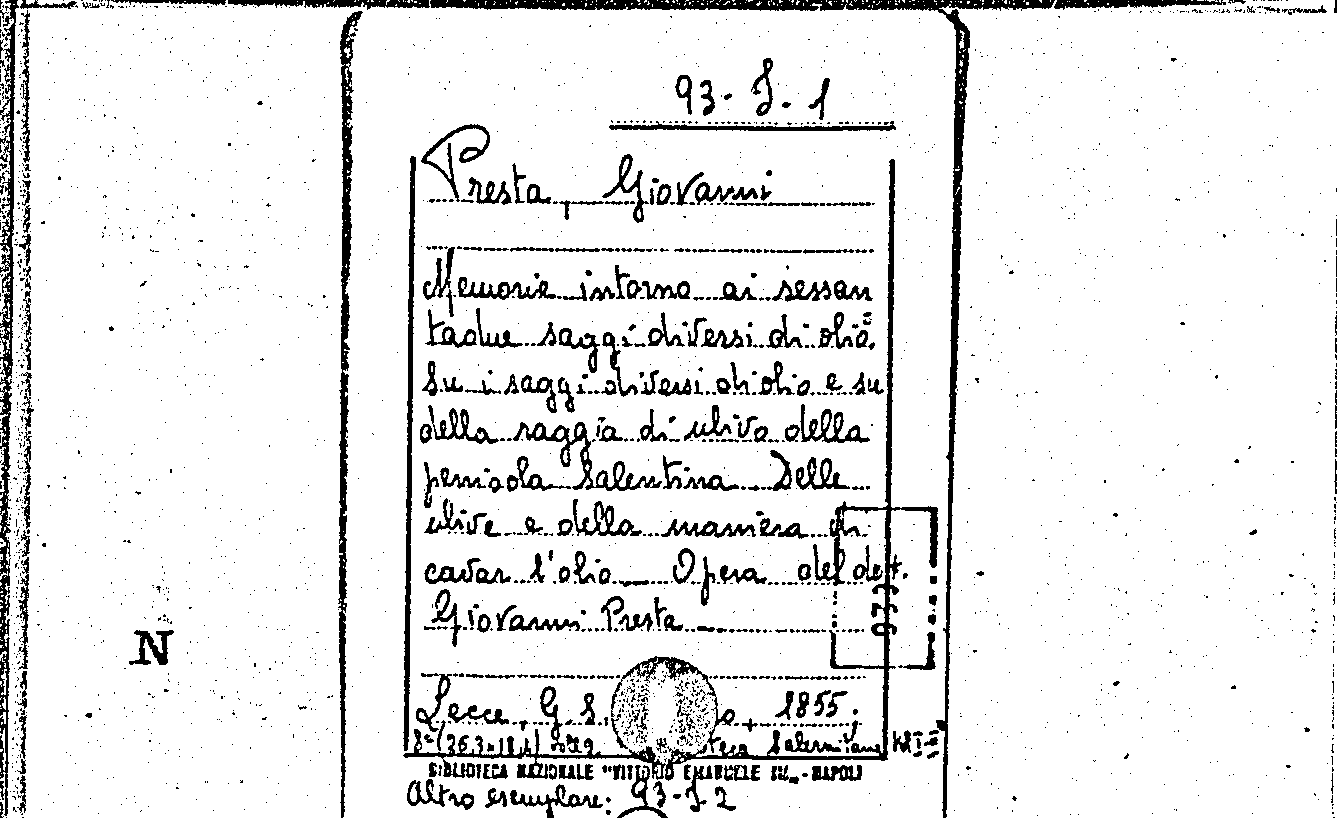 93-J-1
Presta, Giovanni
Memorie intorno ai sessan
tadue saggi diversi di olio
su i saggi diversi di olio e su
della raggia di ulivo della
penisola Salentina Delle
ulive e della maniera di
cavar l'olio _ Opera del dott.
Giovanni Presta _
973
N
Lecce, G. S. 1855;
Salernitana
BIBLIOTECA NAZIONALE "VITTORIO EMANUELE III" - NAPOLI
Altro esemplare: 93-J 2